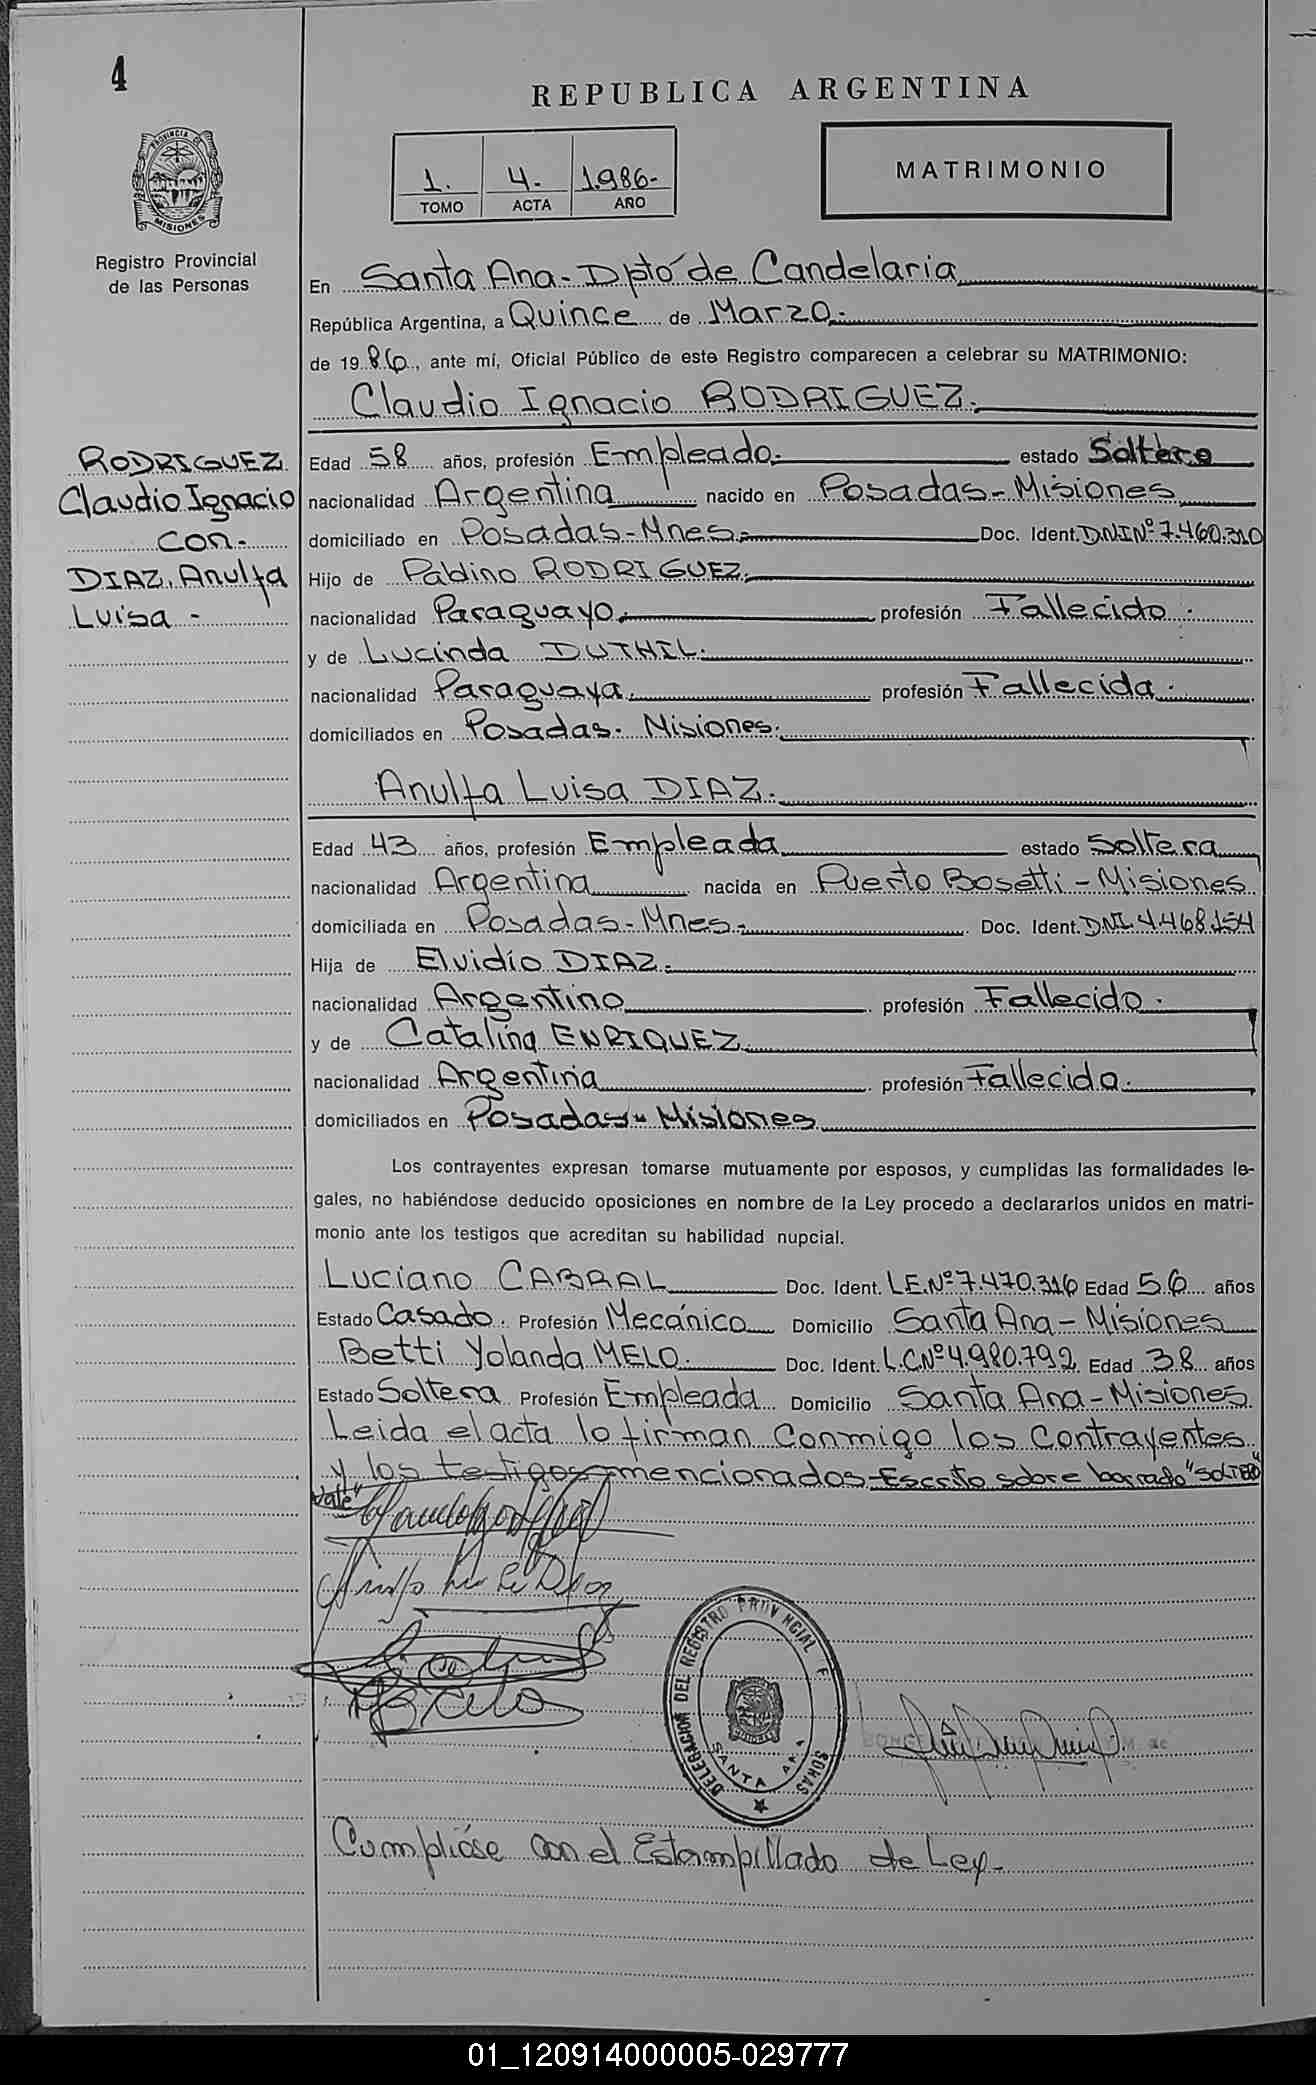 4
REPUBLICA ARGENTINA
PROVINCIA DE
MISIONES
Registro Provincial
de las Personas
1. 4.- 1.986-
TOMO ACTA AÑO
MATRIMONIO
En Santa Ana-Dpto de Candelaria
República Argentina, a Quince de Marzo.-
de 19 86, ante mí, Oficial Público de este Registro comparecen a celebrar su MATRIMONIO:
Claudio Ignacio RODRIGUEZ.
RODRIGUEZ
Claudio Ignacio
Con.-
DIAZ, Anulfa
Luisa -
Edad 58 años, profesión Empleado. estado Soltero
nacionalidad Argentina nacido en Posadas-Misiones
domiciliado en Posadas-Mnes.- Doc. Ident. D.N.I Nº 7.460.310
Hijo de Paldino RODRIGUEZ.
nacionalidad Paraguayo. profesión Fallecido.
y de Lucinda DUTHIL.
nacionalidad Paraguaya. profesión Fallecida.
domiciliados en Posadas. Misiones.
Anulfa Luisa DIAZ.
Edad 43 años, profesión Empleada estado Soltera
nacionalidad Argentina nacida en Puerto Bosetti-Misiones
domiciliada en Posadas-Mnes.- Doc. Ident. DNI. 4.468.154
Hija de Elvidio DIAZ.
nacionalidad Argentino profesión Fallecido.
y de Catalina ENRIQUEZ
nacionalidad Argentina profesión Fallecida.
domiciliados en Posadas-Misiones
Los contrayentes expresan tomarse mutuamente por esposos, y cumplidas las formalidades le-
gales, no habiéndose deducido oposiciones en nombre de la Ley procedo a declararlos unidos en matri-
monio ante los testigos que acreditan su habilidad nupcial.
Luciano CABRAL Doc. Ident. L.E. Nº 7.470.316 Edad 56 años
Estado Casado. Profesión Mecánico Domicilio Santa Ana-Misiones
Betti Yolanda MELO. Doc. Ident. L.C Nº 4.980.792 Edad 38 años
Estado Soltera Profesión Empleada Domicilio Santa Ana-Misiones.
Leida el acta lo firman Conmigo los Contrayentes
y los testigos mencionados-Escrito sobre borrado "SOLTERO"
Vale"
DELEGACION DEL REGISTRO PROVINCIAL
SANTA ANA
MISIONES
Cumplióse con el Estampillado de Ley-
01_120914000005-029777